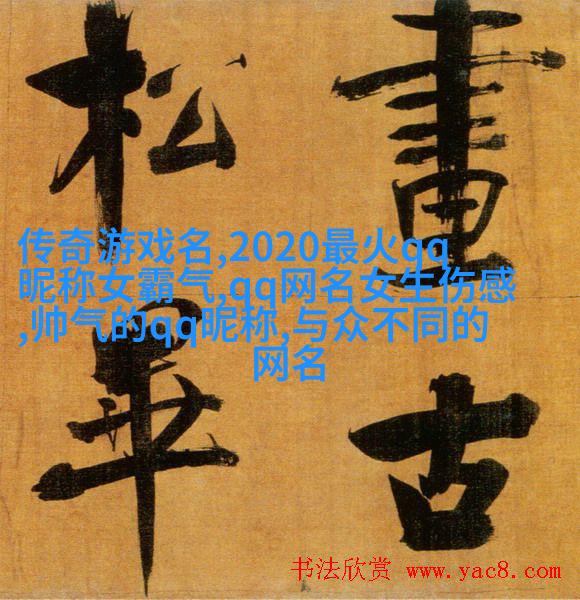 畫古
松畢
传奇游戏名,2020最火qq
昵称女霸气,qq网名女生伤感
,帅气的qq昵称,与众不同的
网名
书法欣赏 www.yac8.com